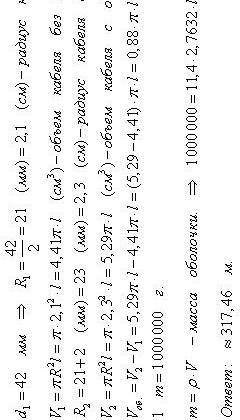 d₁ = 42 мм ⇒ R₁ = 42/2 = 21 (мм) = 2,1 (см) – радиус
V₁ = πR²l = π·2,1²·l = 4,41π·l (см³) – объем кабеля без
R₂ = 21+2 (мм) = 23 (мм) = 2,3 (см) – радиус кабеля
V₂ = πR²l = π·2,3²·l = 5,29π·l (см³) – объем кабеля с
Vₒб. = V₂ – V₁ = 5,29π·l – 4,41π·l = (5,29 – 4,41)·π·l = 0,88·π·l
1 т = 1000000 г.
m = ρ·V – масса оболочки ⇒ 1000000 = 11,4·2,7632·l
Ответ: ≈ 317,46 м.